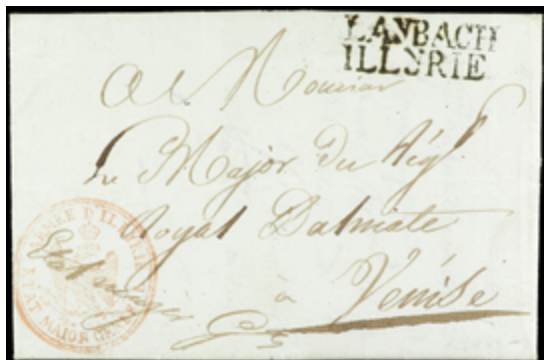 LAYBACH
ILLYRIE
A Monsieur
Le Major du Régt
Royal Dalmate
à
Venise
ARMÉE D'ILLYRIE
ETAT MAJOR GÉN
Etat major